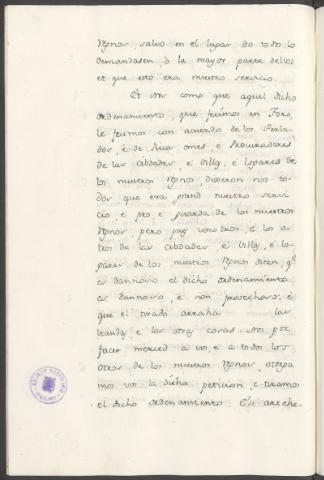 Regnos, salvo en el lugar do todos lo
demandasen, ò la mayor parte dellos
et que esto era nuestro servicio.
Et Nos como que aquel dicho
ordenamiento, que fecimos en Toro,
le fecimos con acuerdo de los Perla-
dos, è de Ricos omes, è Procuradores
de las cibdades, è villas, è logares de
los nuestros Regnos, dixeron nos to-
dos que era grand nuestro servi-
cio, è pro, è guarda de los nuestros
Regnos, pero pues vosotros, è los o-
tros de las cibdades, è villas, è lo-
gares de los nuestros Regnos dicen, q.e
es dannoso el dicho ordenamiento
es dannoso, e non provechoso: è
que el tirado arraha las
viandas, è las otras cosas. Nos por
facer merced a vos, è a todos los
otros de los nuestros Regnos, otorga
mos vos la dicha peticion, e tiramos
el dicho ordenamiento. En arrehe-